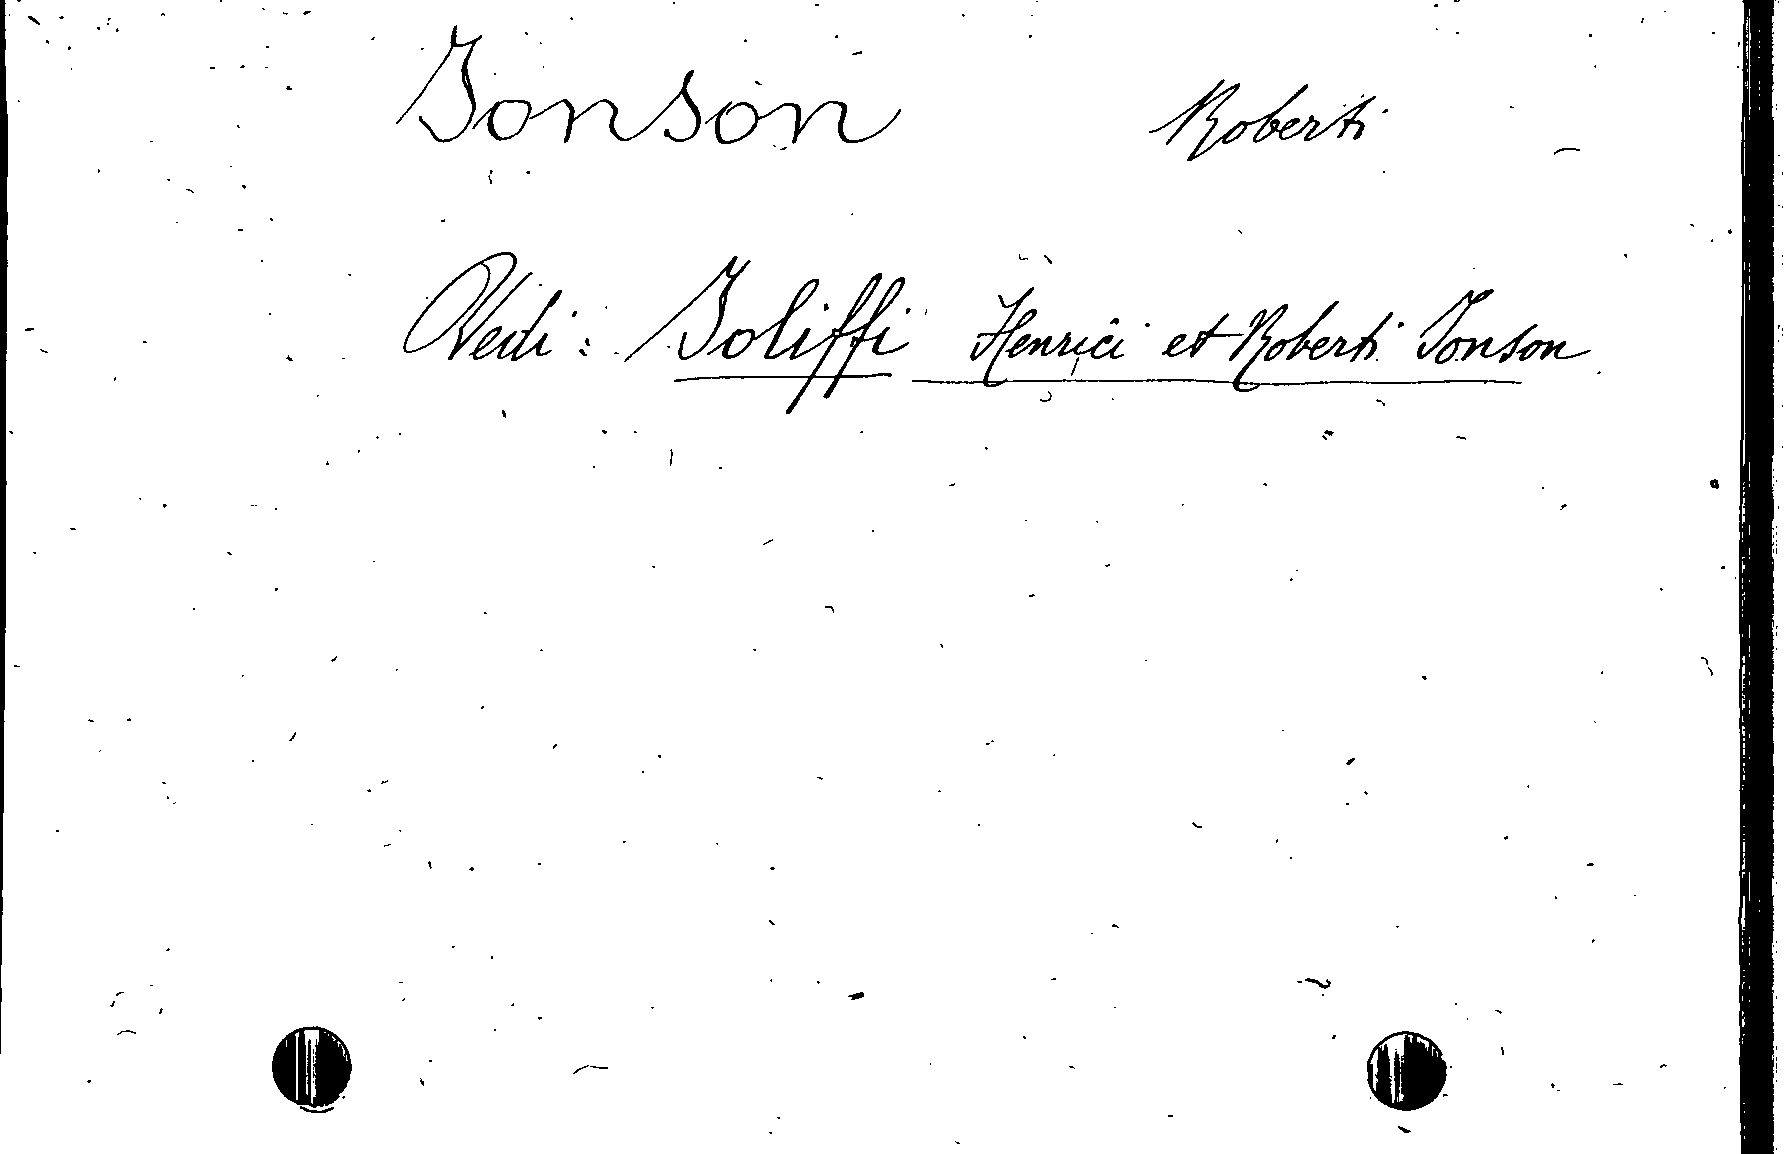 Jonson Roberti
Vedi: Joliffi Henrici et Roberti Jonson